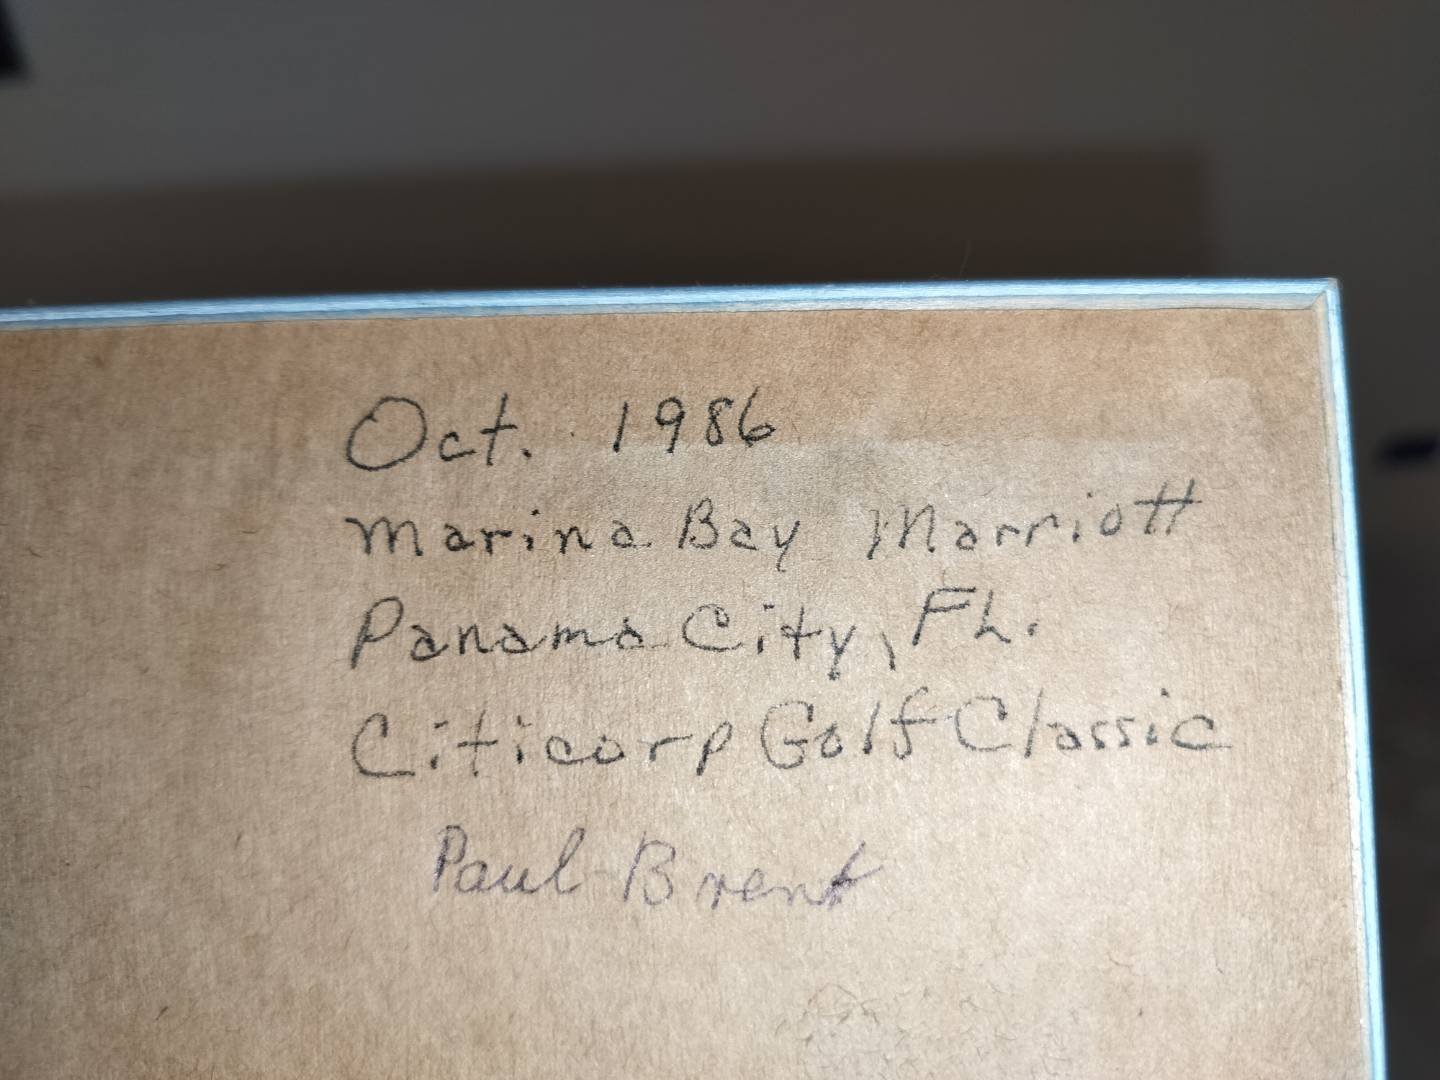 Oct. 1986
Marina Bay Marriott
Panama City, FL.
Citicorp Golf Classic
Paul Brent